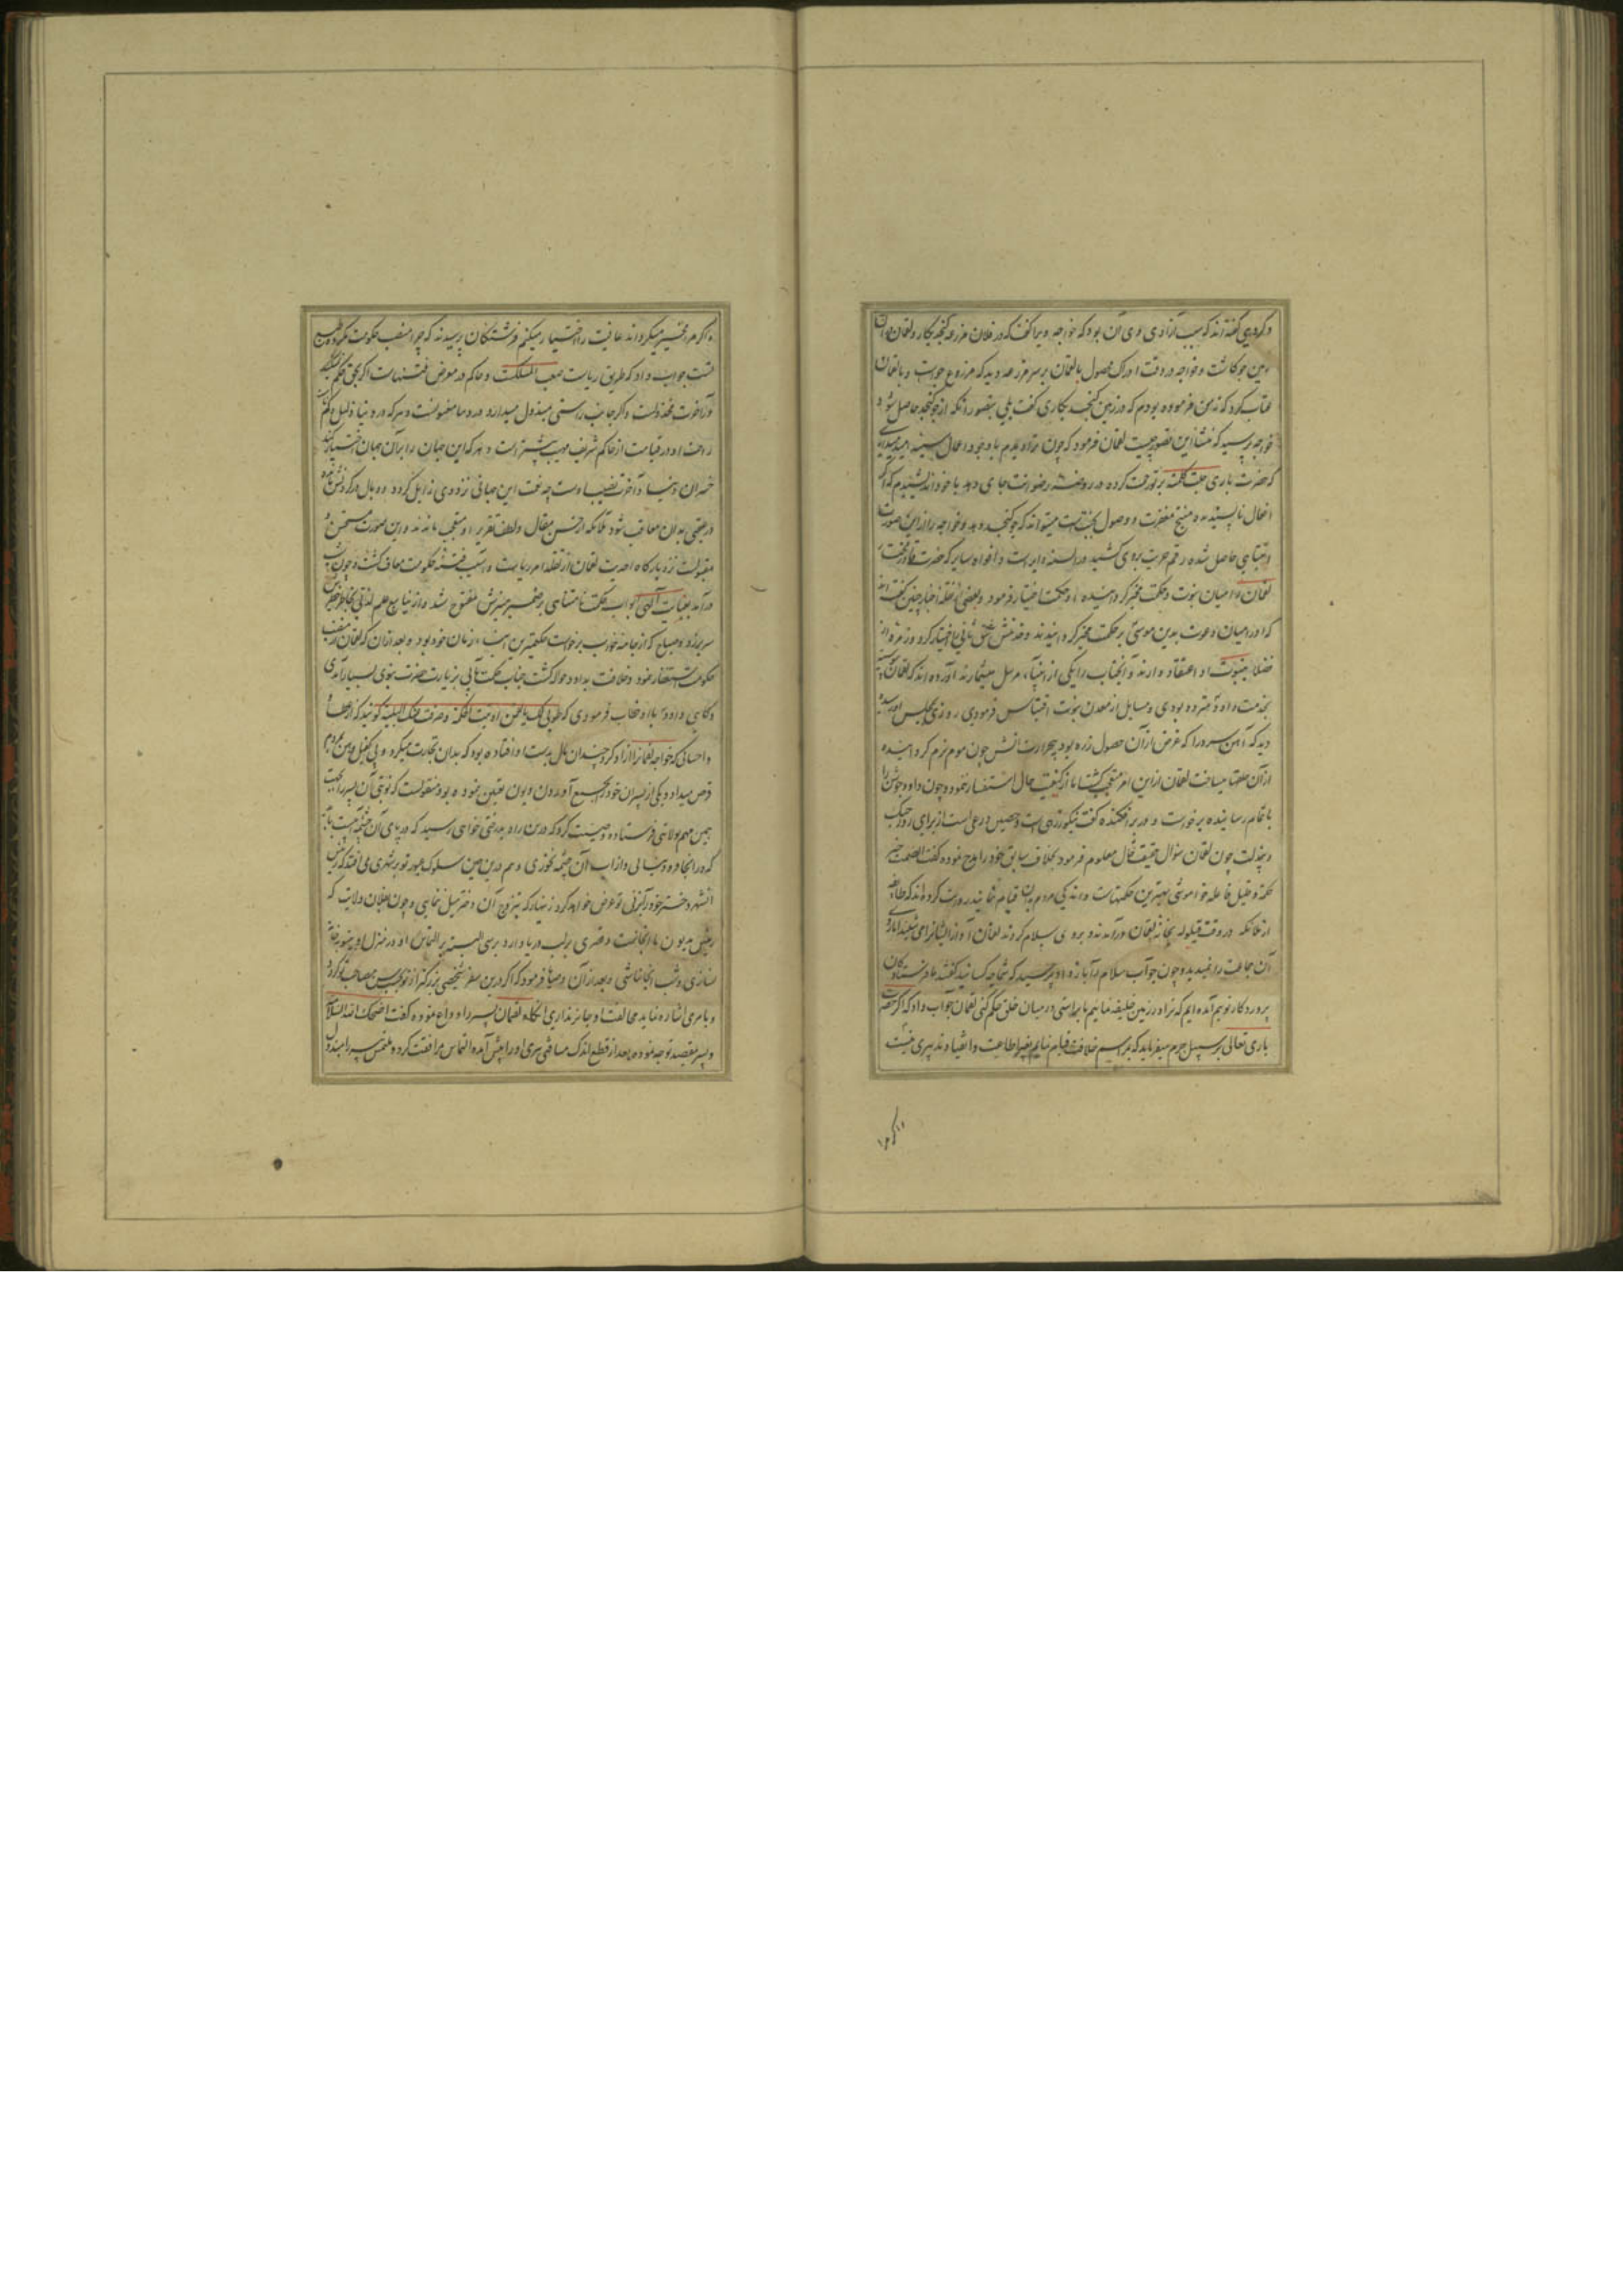 و گروهی گفته اند که سبب آزادی وی آن بود که خواجه ویرا گفت که در فلان مزرعه کنجد بکار و لقمان در آن
زمین جو کاشت و خواجه در وقت ادراک محصول با لقمان بر سر مزرعه دید که مزروع جو است و با لقمان
عتاب کرد که نه من فرموده بودم که در زمین کنجد بکاری گفت بلی بتصور آنکه از جو کنجد حاصل شود
خواجه پرسید که منشأ این تصور چیست لقمان فرمود که چون ترا دیدم با وجود اعمال سیئه امید میداری
که حضرت باری جلت کلمته بر تو رحمت کرده در روضه رضوانت جای دهد با خود اندیشیدم که اگر
افعال ناپسندیده منتج مغفرت و وصول بجنت است میتواند که جو کنجد دهد و خواجه را از این صورت
انتباهی حاصل شده رقم حریت بروی کشید در السنه و افواه سایر که حضرت
لقمان را میان نبوت و حکمت مخیر گردانیده او حکمت اختیار فرمود و بعضی از نقله اخبار چنین گفته اند
که او را میان دعوت بدین موسی و حکمت مخیر گردانیدند و شق ثانی را اختیار کرد و زمره از
فضلا بنبوت او اعتقاد دارند و آنجناب را یکی از انبیاء مرسل میشمارند آورده اند که لقمان
بخدمت داود تردد بودی و مسایل از معدن نبوت اقتباس فرمودی روزی بمجلس او رسیده
دید که آهن سرد را که غرض از آن حصول زره بود بی حرارت آتش چون موم نرم گردانیده
از آن حلقها میساخت لقمان از این امر متعجب گشت اما از کیفیت حال استفسار ننمود و چون داود جوشن را
باتمام رسانیده برخواست و در بر افکنده گفت نیکو زرهی است و حصین درعی است از برای روز جنگ
چون لقمان سؤال حقیقت حال معلوم فرمود بخلاف سابق خود را مدح نموده گفت الصمت خیر
حکمة و قلیل فاعله خواموشی بهترین حکمتهاست و اندکی مردم بدان قیام نمایند روایت کرده اند که طایفه
از ملائکه در وقت قیلوله بخانه لقمان درآمدند و بر وی سلام کردند لقمان آواز ایشانرا می شنید اما روی
آن جماعت را نمیدید و چون جواب سلام را باز داد پرسید که شما چه کسانید گفتند ما فرستادگان
پروردگار توییم آمده ایم که ترا در زمین خلیفه نماییم تا براستی در میان خلق حکم کنی لقمان جواب داد که اگر حضرت
باری تعالی بر سبیل جزم میفرماید که بمراسم خلافت قیام نمایم بغیر اطاعت و انقیاد تدبیری نیست
و اگر مرا مخیر میگرداند عافیت را اختیار میکنم فرشتگان پرسیدند که چرا منصب حکومت مکروه طبع
تست جواب داد که طریق ریاست صعب المسلک است و حاکم در معرض فتنهاست اگر بحق حکم نکند
در آخرت مخذولست و اگر جانب راستی مبذول میدارد در دو سرا مقبولست و هر که در دنیا ذلیل و گمنام
راحت او در قیامت از حاکم شریف مهیب بیشتر است و هر که این جهان را بر آن جهان اختیار کند
خسران دنیا و آخرت نصیب اوست چه نعمت این جهانی بزودی زایل گردد و وبال در گردنش ماند
در عقبی بدان معاقب شود ملائکه از حسن مقال و لطف تقریر او متعجب ماندند و این صورت مستحسن و
مقبولست نزد بارگاه احدیت لقمان از تقلد امر ریاست و آسیب فتنه حکومت معاف گشت و چون شب
درآمد بعنایت آلهی ابواب حکمت نامتناهی بر ضمیر منیرش مفتوح شد و از ینابیع علم لدنی بخاطر خطیرش
سر برزد و صباح که از جامه خواب برخواست حکیمترین ابناء زمان خود بود و بعد از آن که لقمان از منصب
حکومت استعفا نمود و خلافت بداود حواله گشت جناب حکمت مآبی بزیارت حضرت نبوی بسیار آمدی
و گاهی داود با او خطاب فرمودی که طوبی لک یا لقمن اوتیت الحکمة و صرفت عنک البلیة گویند که از عطا
و احسانی که خواجه لقمانرا آزاد کرد چندان مال بدست او افتاده بود که بدان تجارت میکرد و بی کفیل و رهن بمردم
قرض میداد و یکی از پسران خود بجمع آوردن دیون تعیین نموده بود منقولست که نوبتی آن پسر را بجهت
همین مهم بولایتی فرستاده وصیت کرد که درین راه بدرختی خواهی رسید که در پای آن چشمه آبیست باید
که در آنجا فرود نیایی و از آب آن چشمه نخوری و هم درین حین سلوک عبور تو بر شهری می افتد که رئیس
آنشهر دختر خود را بزنی تو عرض خواهد کرد زنهار که بتزویج آن دختر میل ننمایی و چون بفلان ولایت که
رئیس مدیون ما آنجاست و قصری بر لب دریا دارد برسی البته بر التماس او در منزل او بیتوته
نسازی و شب آنجا نباشی و بعد از آن وصایا فرمود که اگر درین سفر شخصی بزرگتر از تو بحسب سن مصاحب تو گردد
و بامری اشاره نماید مخالفت او جایز نداری آنگاه لقمان پسر را وداع نموده گفت اصحبک الله السلامة
و پسر بمقصد توجه نموده بعد از قطع اندک مسافتی پیری او را پیش آمده التماس مرافقت کرده ملتمس پیر را مبذول